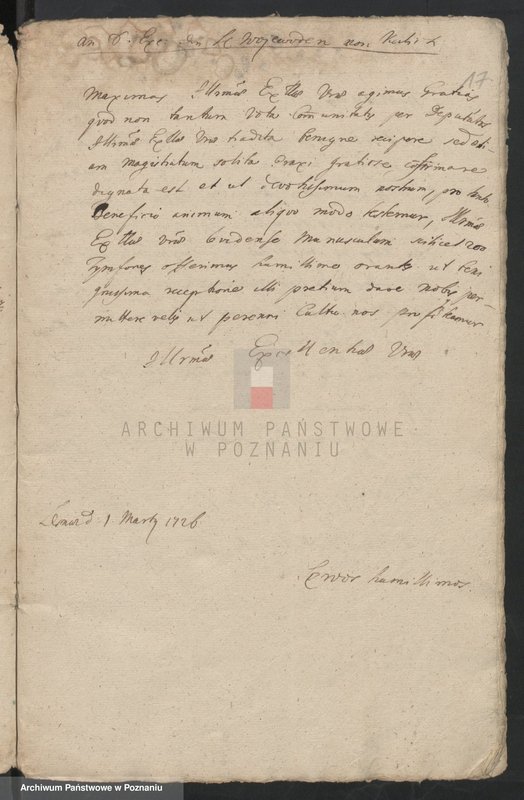 17
Maximas Illrmae Exllae Vrae agimus Gratias
quod non tantum Vota Communitatis per Deputatos
Illrmae Exllae Vrae tradita benigne recipere sed eti-
am Magistratum solita praxi gratiose confirmare
dignata est et ut devotissimum nostrum, pro tanto
Beneficio animum aliquo modo testemur, Illrmae
Exllae Vrae munusculum
offerimus humillime orantes ut beni
gnissima receptione illi pretium dare nobis per-
mittere velis ut perenni Cultu nos profiteamur
Illrmae Excellentiae Vrae
ARCHIWUM PAŃSTWOWE
W POZNANIU
d. 1 Marty 1726
Servos humillimos
Archiwum Państwowe w Poznaniu